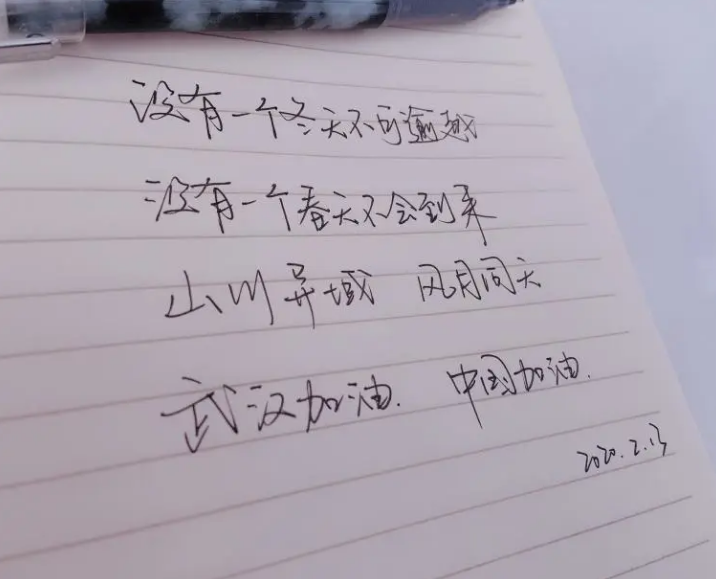 没有一个冬天不可逾越
没有一个春天不会到来
山川异域 风月同天
武汉加油. 中国加油.
2020.2.13